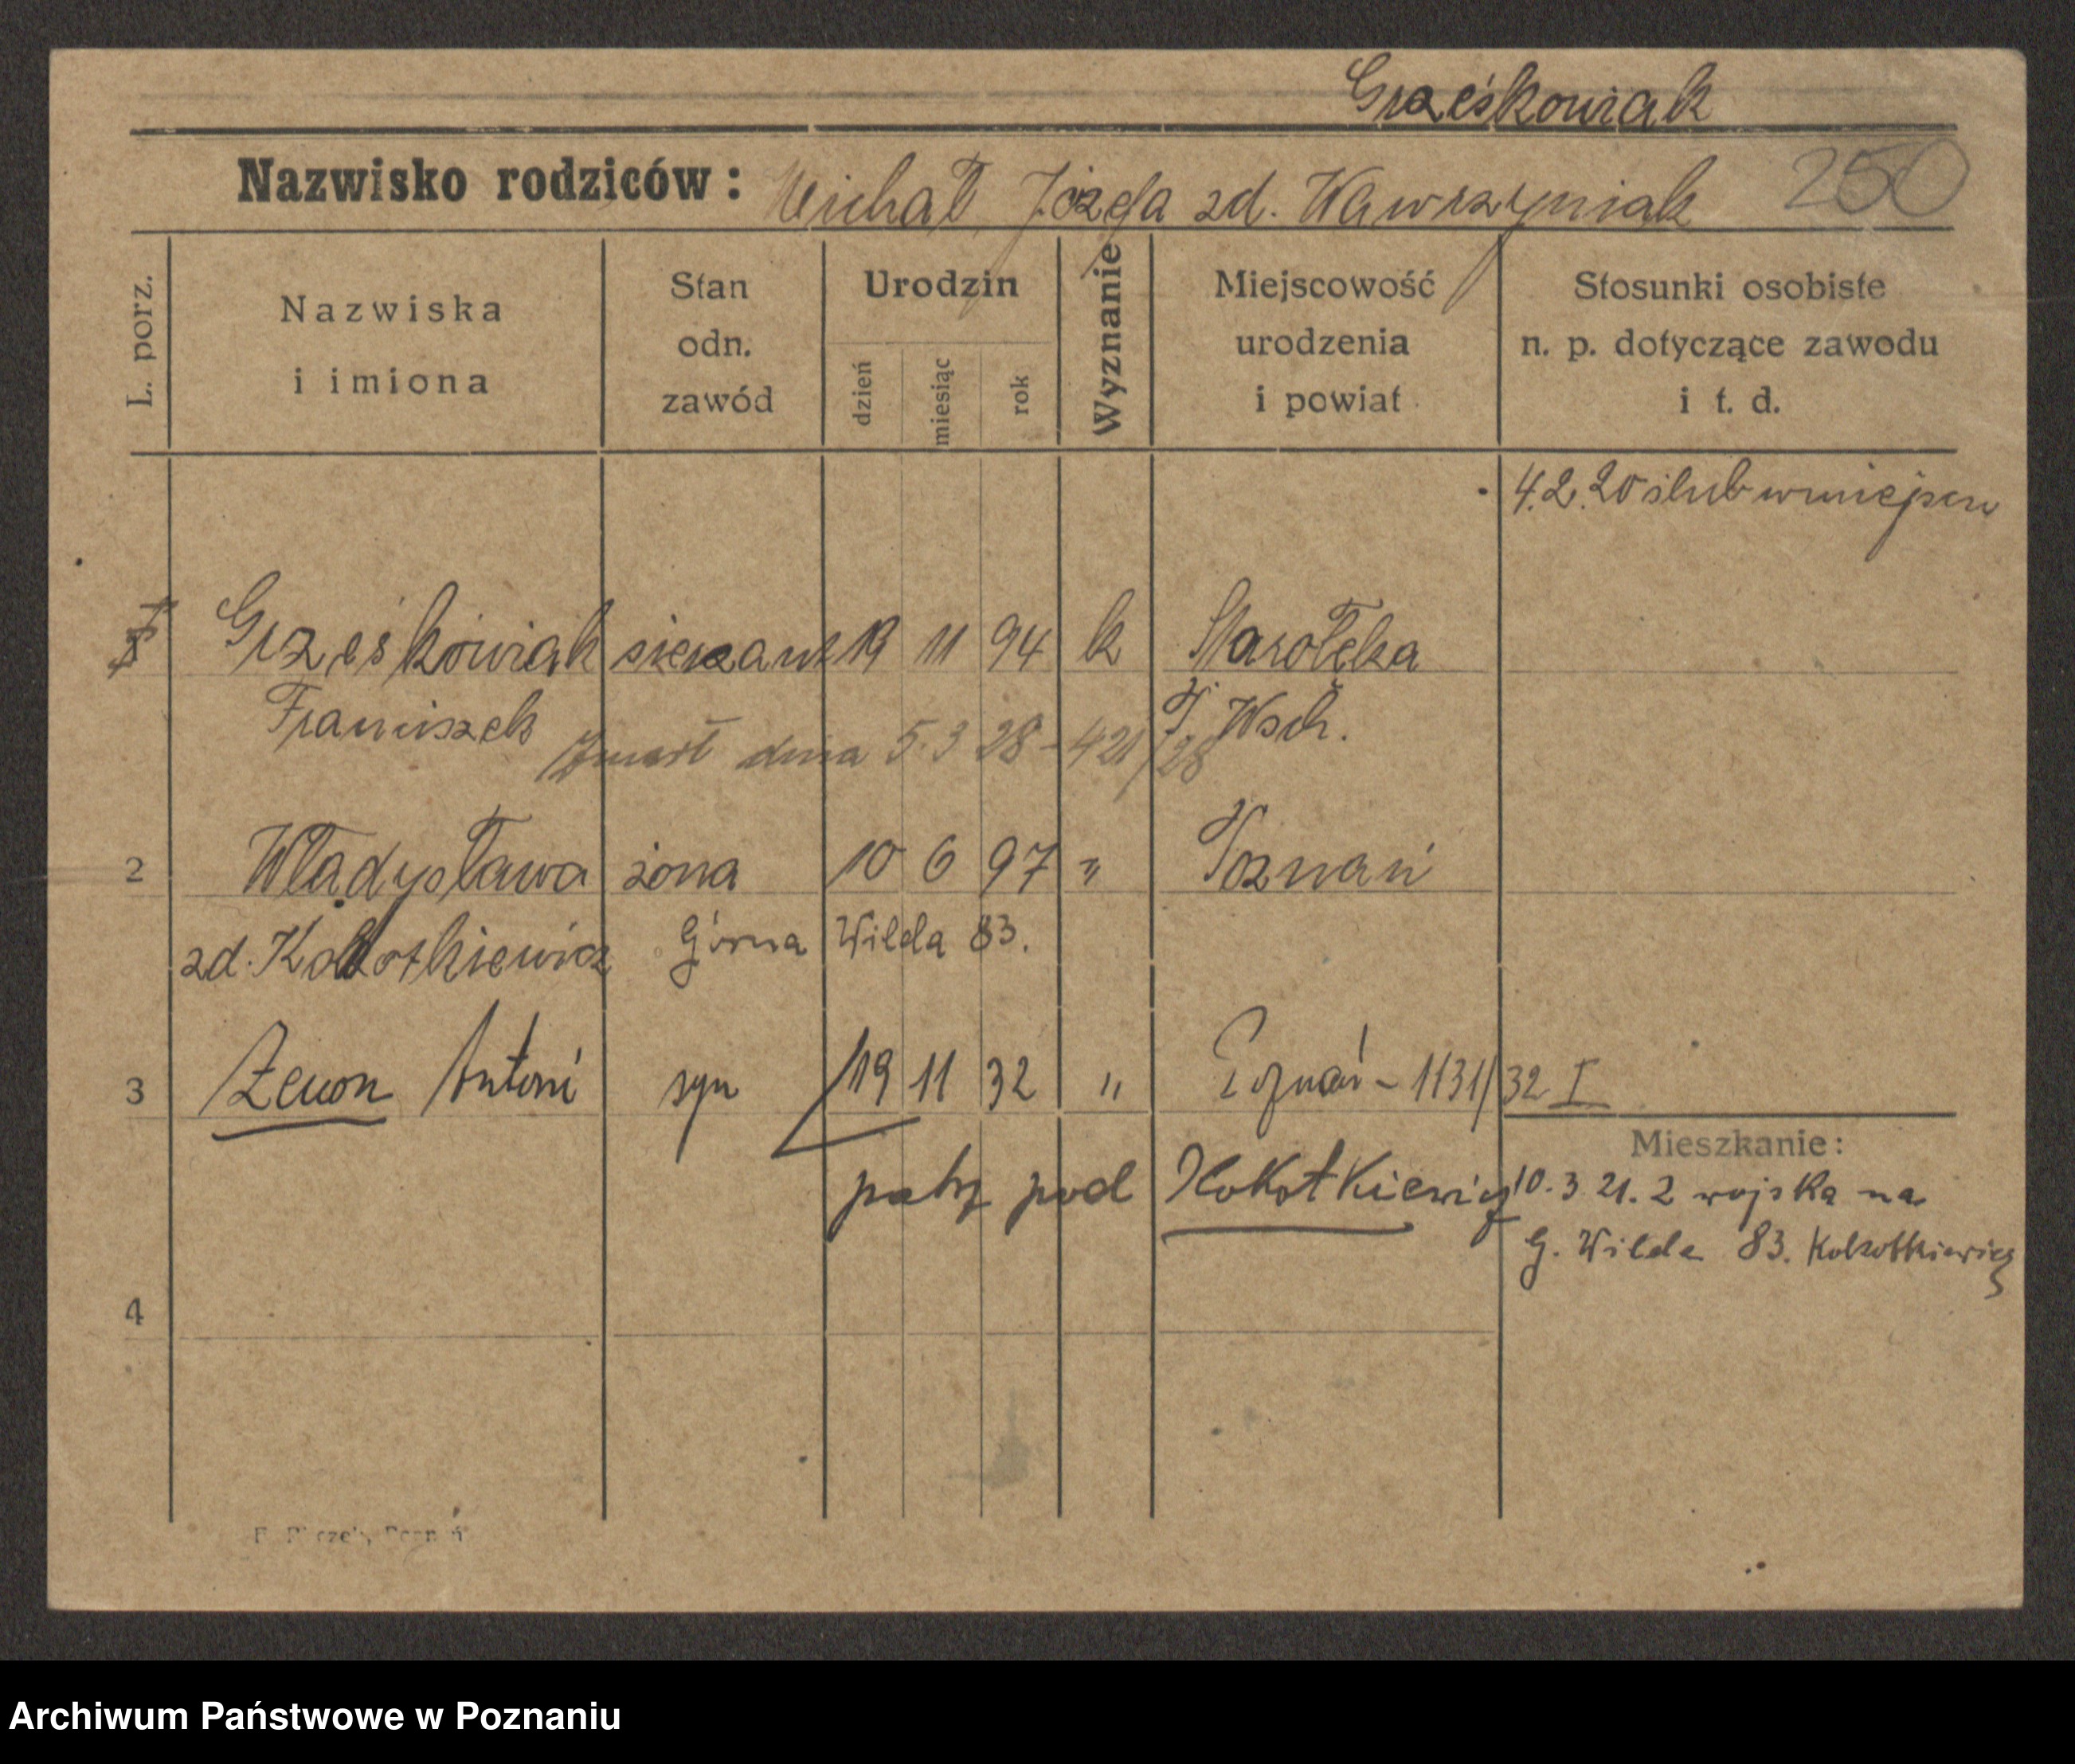 Grześkowiak
Nazwisko rodziców: Michał, Józefa zd. Wawrzyniak 250
L. porz.
Nazwiska
i imiona
Stan
odn.
zawód
Urodzin
dzień
miesiąc
rok
Wyznanie
Miejscowość
urodzenia
i powiat
Stosunki osobiste
n. p. dotyczące zawodu
i t. d.
4.2.20 ślub w miejscu
Grześkowiak 19 11 94 k Starołęka
Franciszek P. Wsch.
Zmarł dnia 5.3 28 - 421/28
2 Władysława żona 10 6 97 " Poznań
zd. Kokotkiewicz Górna Wilda 83.
3 Zenon Antoni syn 19 11 32 " Poznań - 1131/32 I
Mieszkanie:
patrz pod Kokotkiewicz
10.3 21. z wojska na
G. Wilda 83. Kokotkiewicz
4
Archiwum Państwowe w Poznaniu